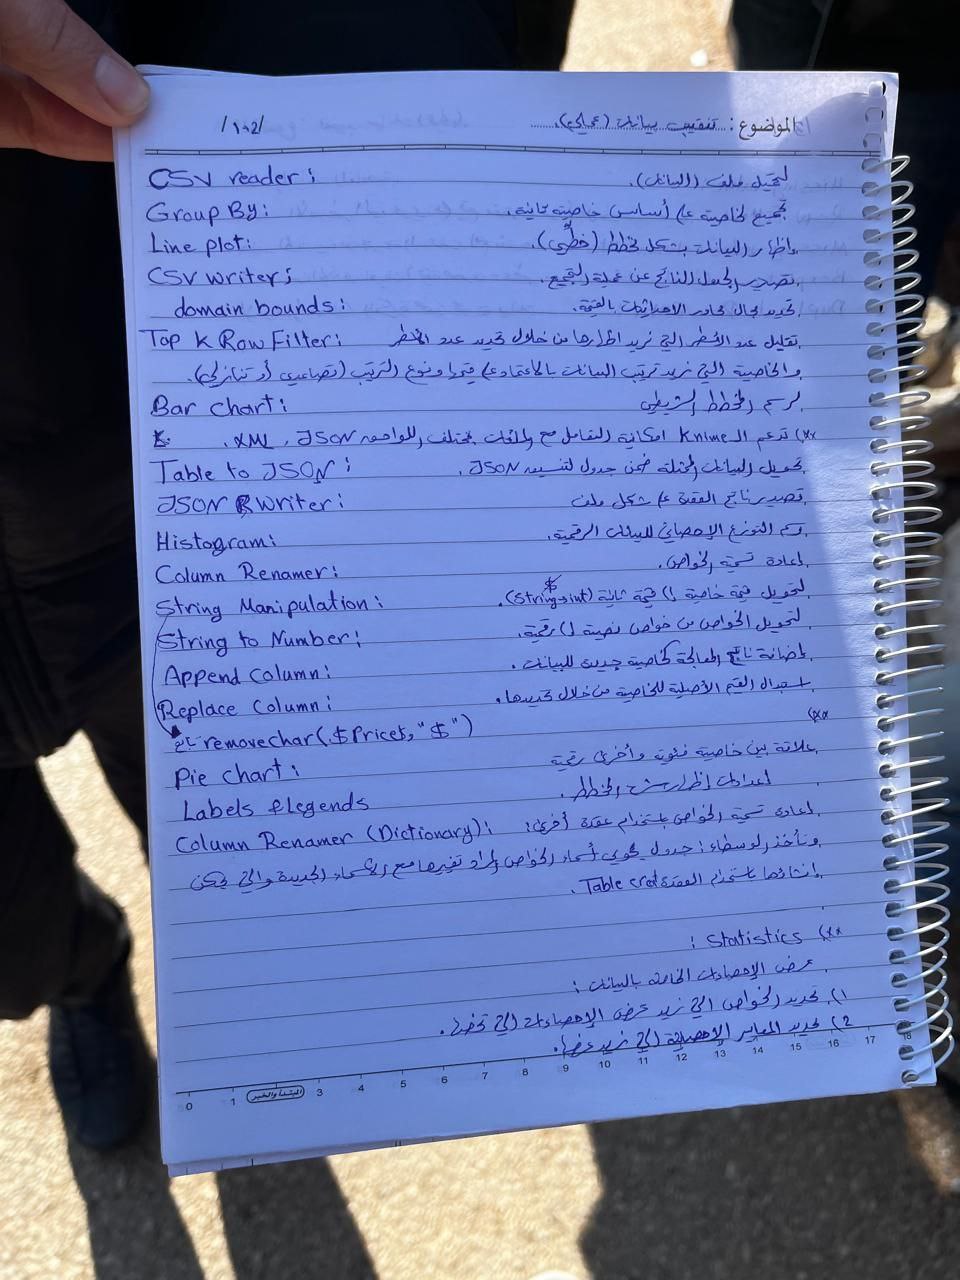 الموضوع: تنقيب بيانات (عملي). /١+٢/
CSV reader: لتحميل ملف (البيانات).
Group By: تجميع لخاصية على أساس خاصية ثانية.
Line plot: إظهار البيانات بشكل مخطط (خطّي).
CSV writer: تصدير الجدول الناتج عن عملية التجميع.
domain bounds: تحديد مجال محاور الاحداثيات بالقيمة.
Top k Row Filter: تقليل عدد الأسطر التي نريد اظهارها من خلال تحديد عدد الأسطر
والخاصية التي نريد ترتيب البيانات بالاعتماد على قيمها ونوع الترتيب (تصاعدي أو تنازلي).
Bar chart: لرسم المخطط الشريطي
**) تدعم الـ Knime امكانية التعامل مع والملفات بمختلف اللواحق JSON, XML.
Table to JSON: تحويل البيانات ضمن جدول لتنسيق JSON.
JSON Writer: تصدير ناتج العقدة على شكل ملف
Histogram: رسم التوزع الإحصائي للبيانات الرقمية.
Column Renamer: إعادة تسمية الخواص.
String Manipulation: لتحويل قيمة خاصية لـ قيمة ثانية (String→int). $
String to Number: لتحويل الخواص من خواص نصية لـ رقمية.
Append Column: إضافة ناتج المعالجة كخاصية جديدة للبيانات.
Replace Column: استبدال القيم الأصلية للخاصية من خلال تحديدها.
تابع removechar($Price$, "$") **)
Pie chart: علاقة بين خاصية فئوية وأخرى رقمية
Labels & legends اعدادات إظهار شرح المخطط.
Column Renamer (Dictionary): إعادة تسمية الخواص باستخدام عقدة أخرى:
وتأخذ كوسطاء: جدول يحوي أسماء الخواص المراد تغييرها مع الأسماء الجديدة والتي يمكن
إنشائها باستخدام العقدة Table cret.
**) Statistics:
عرض الإحصاءات الخاصة بالبيانات:
1). تحديد الخواص التي نريد عرض الإحصاءات التي تخصها.
2). تحديد المعايير الإحصائية التي نريد عرضها.
0 1 المبتدأ والخبر 3 4 5 6 7 8 9 10 11 12 13 14 15 16 17 18